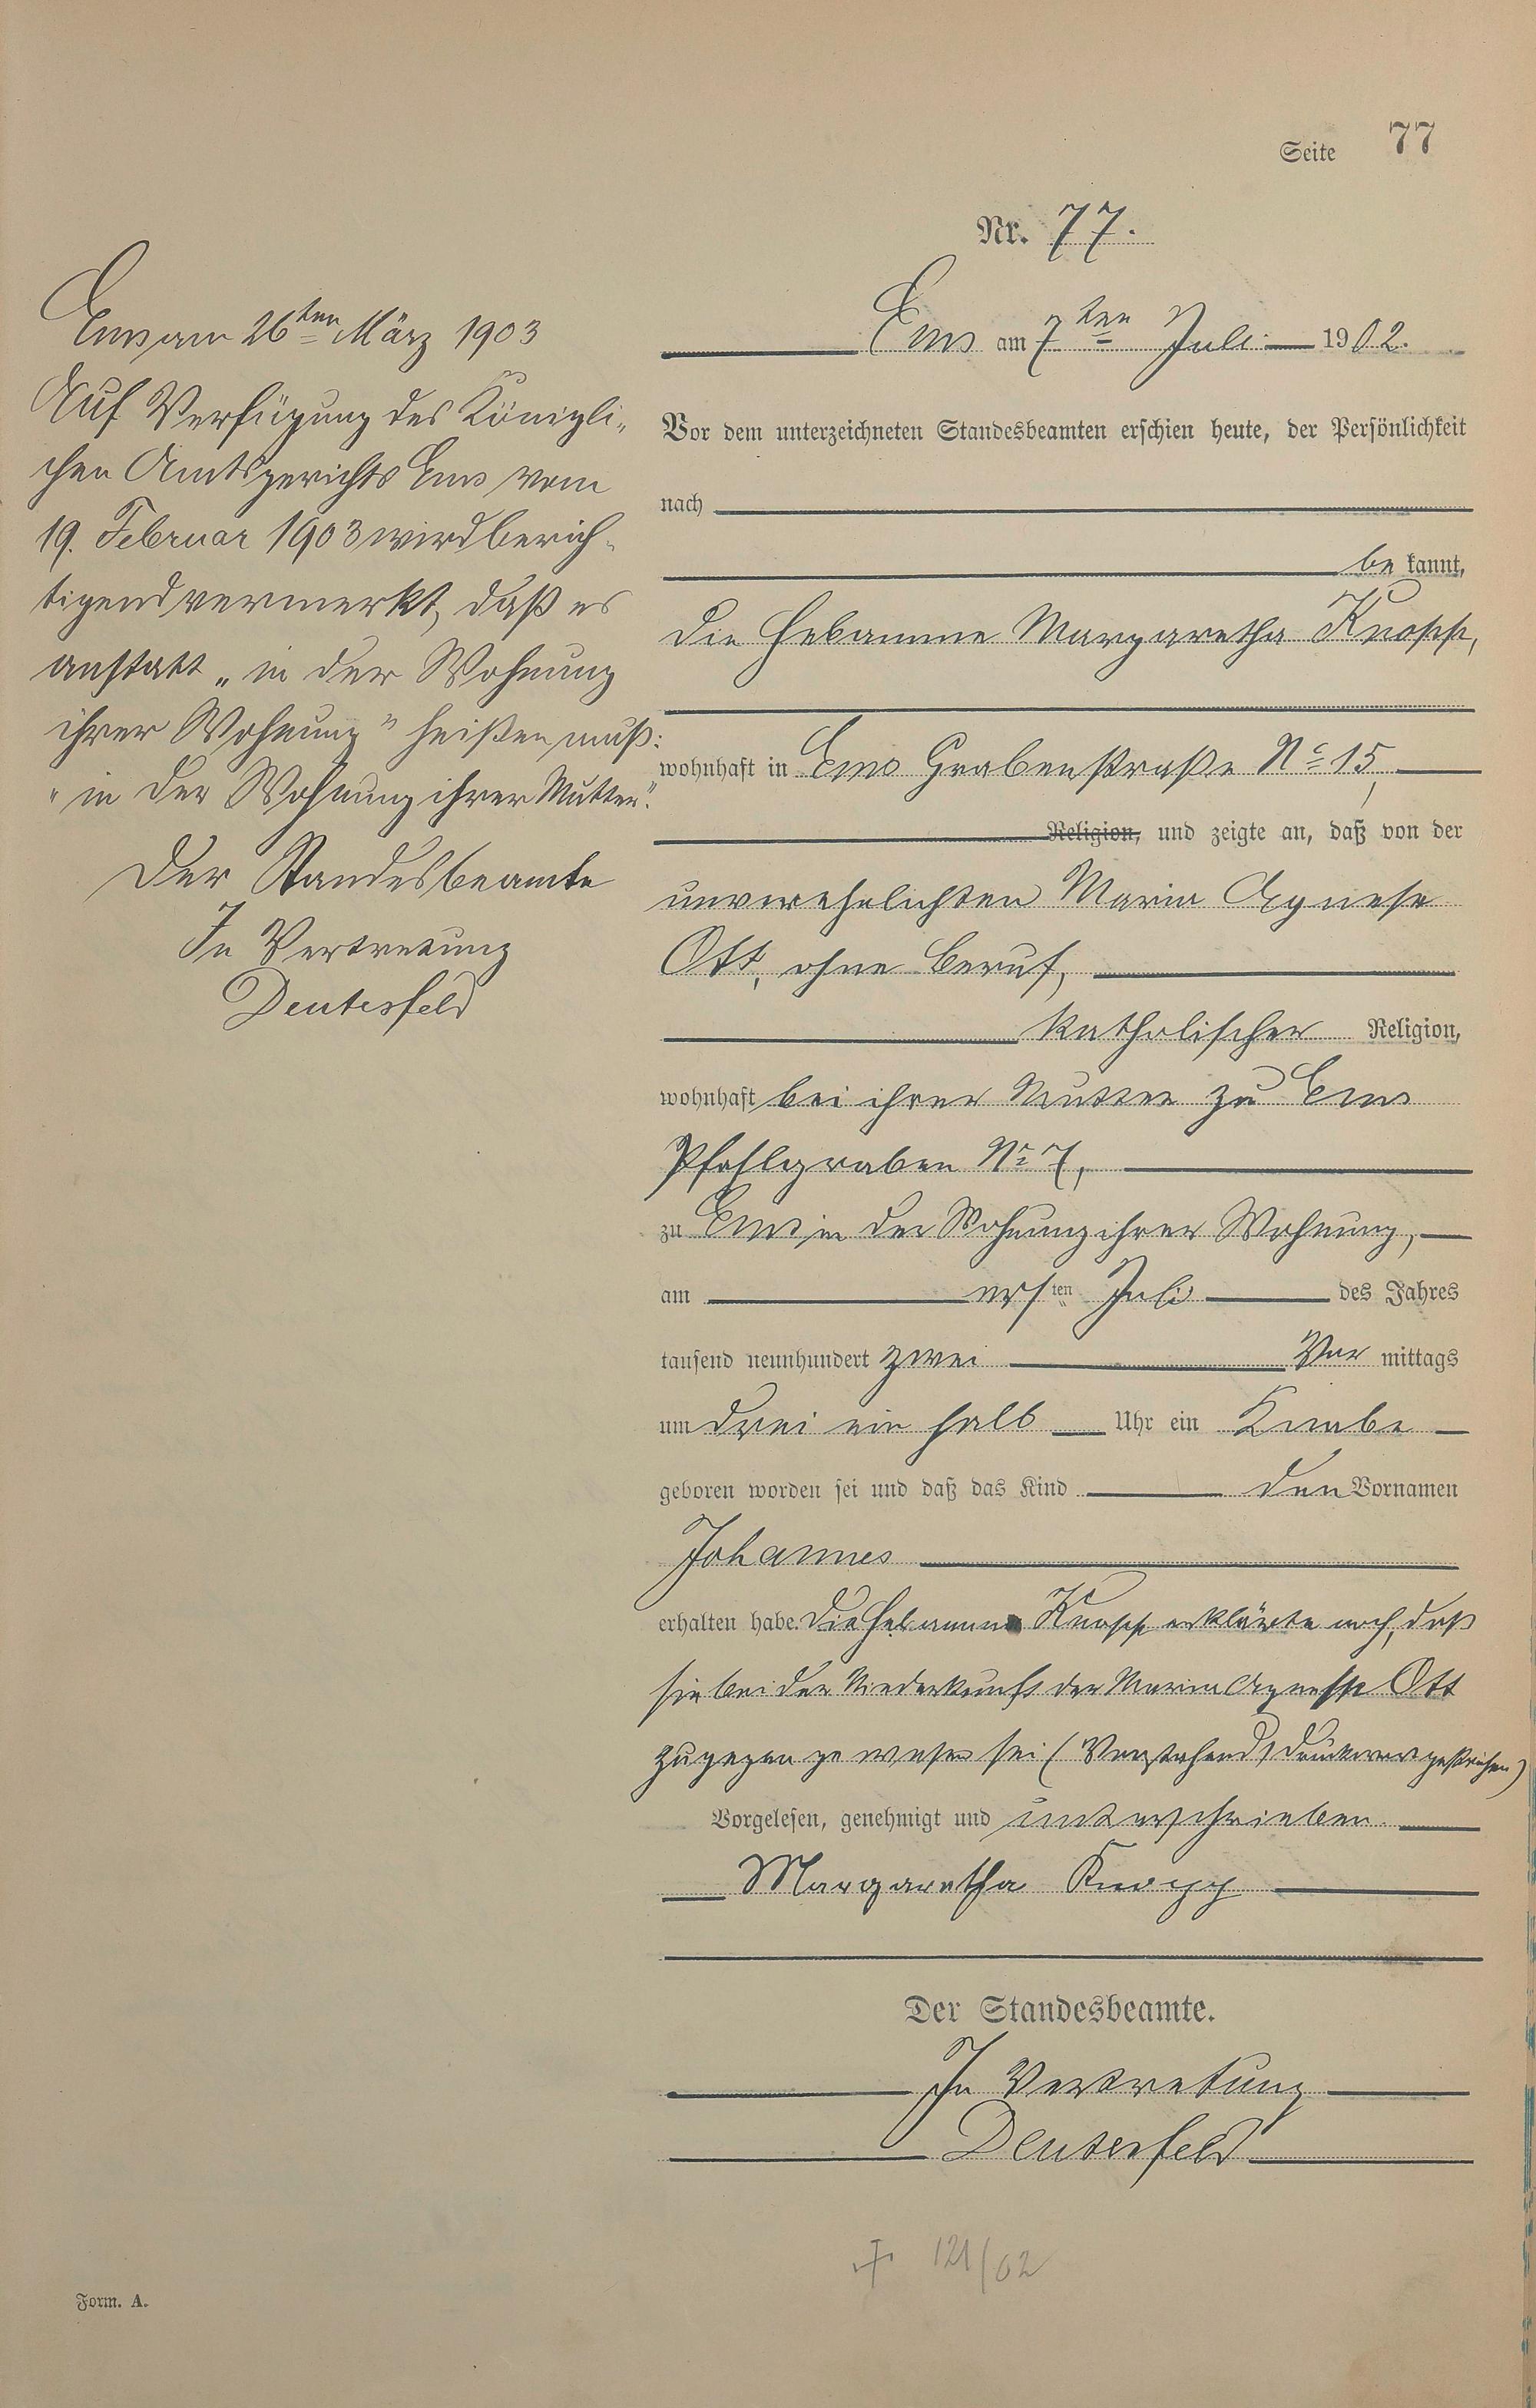 Seite 77
Nr. 77.
Ems am 26ten März 1903
Auf Verfügung des Königli-
chen Amtsgerichts Ems vom
19. Februar 1903 wird berich-
tigend vermerkt, daß es
anstatt „in der Wohnung
ihrer Wohnung" heißen muß:
"in der Wohnung ihrer Mutter".
Der Standesbeamte
In Vertretung
Deutesfeld
Ems am 7ten Juli 1902.
Vor dem unterzeichneten Standesbeamten erschien heute, der Persönlichkeit
nach
be kannt,
die Hebamme Margaretha Knopp,
wohnhaft in Ems Grabenstraße No 15,
Religion, und zeigte an, daß von der
unverehelichten Maria Agnese
Ott, ohne Beruf,
katholischer Religion,
wohnhaft bei ihrer Mutter zu Ems
Pfahlgraben No 7,
zu Ems in der Wohnung ihrer Wohnung,
am ersten Juli des Jahres
tausend neunhundert zwei Vor mittags
um drei ein halb Uhr ein Knabe
geboren worden sei und daß das Kind den Vornamen
Johannes
erhalten habe. Die Hebamme Knopp erklärte noch, daß
sie bei der Niederkunft der Maria Agnese Ott
zugegen gewesen sei (Vorstehend 1 Druckwort gestrichen)
Vorgelesen, genehmigt und unterschrieben.
Margaretha Knopp
Der Standesbeamte.
In Vertretung
Deutesfeld
† 121/02
Form. A.